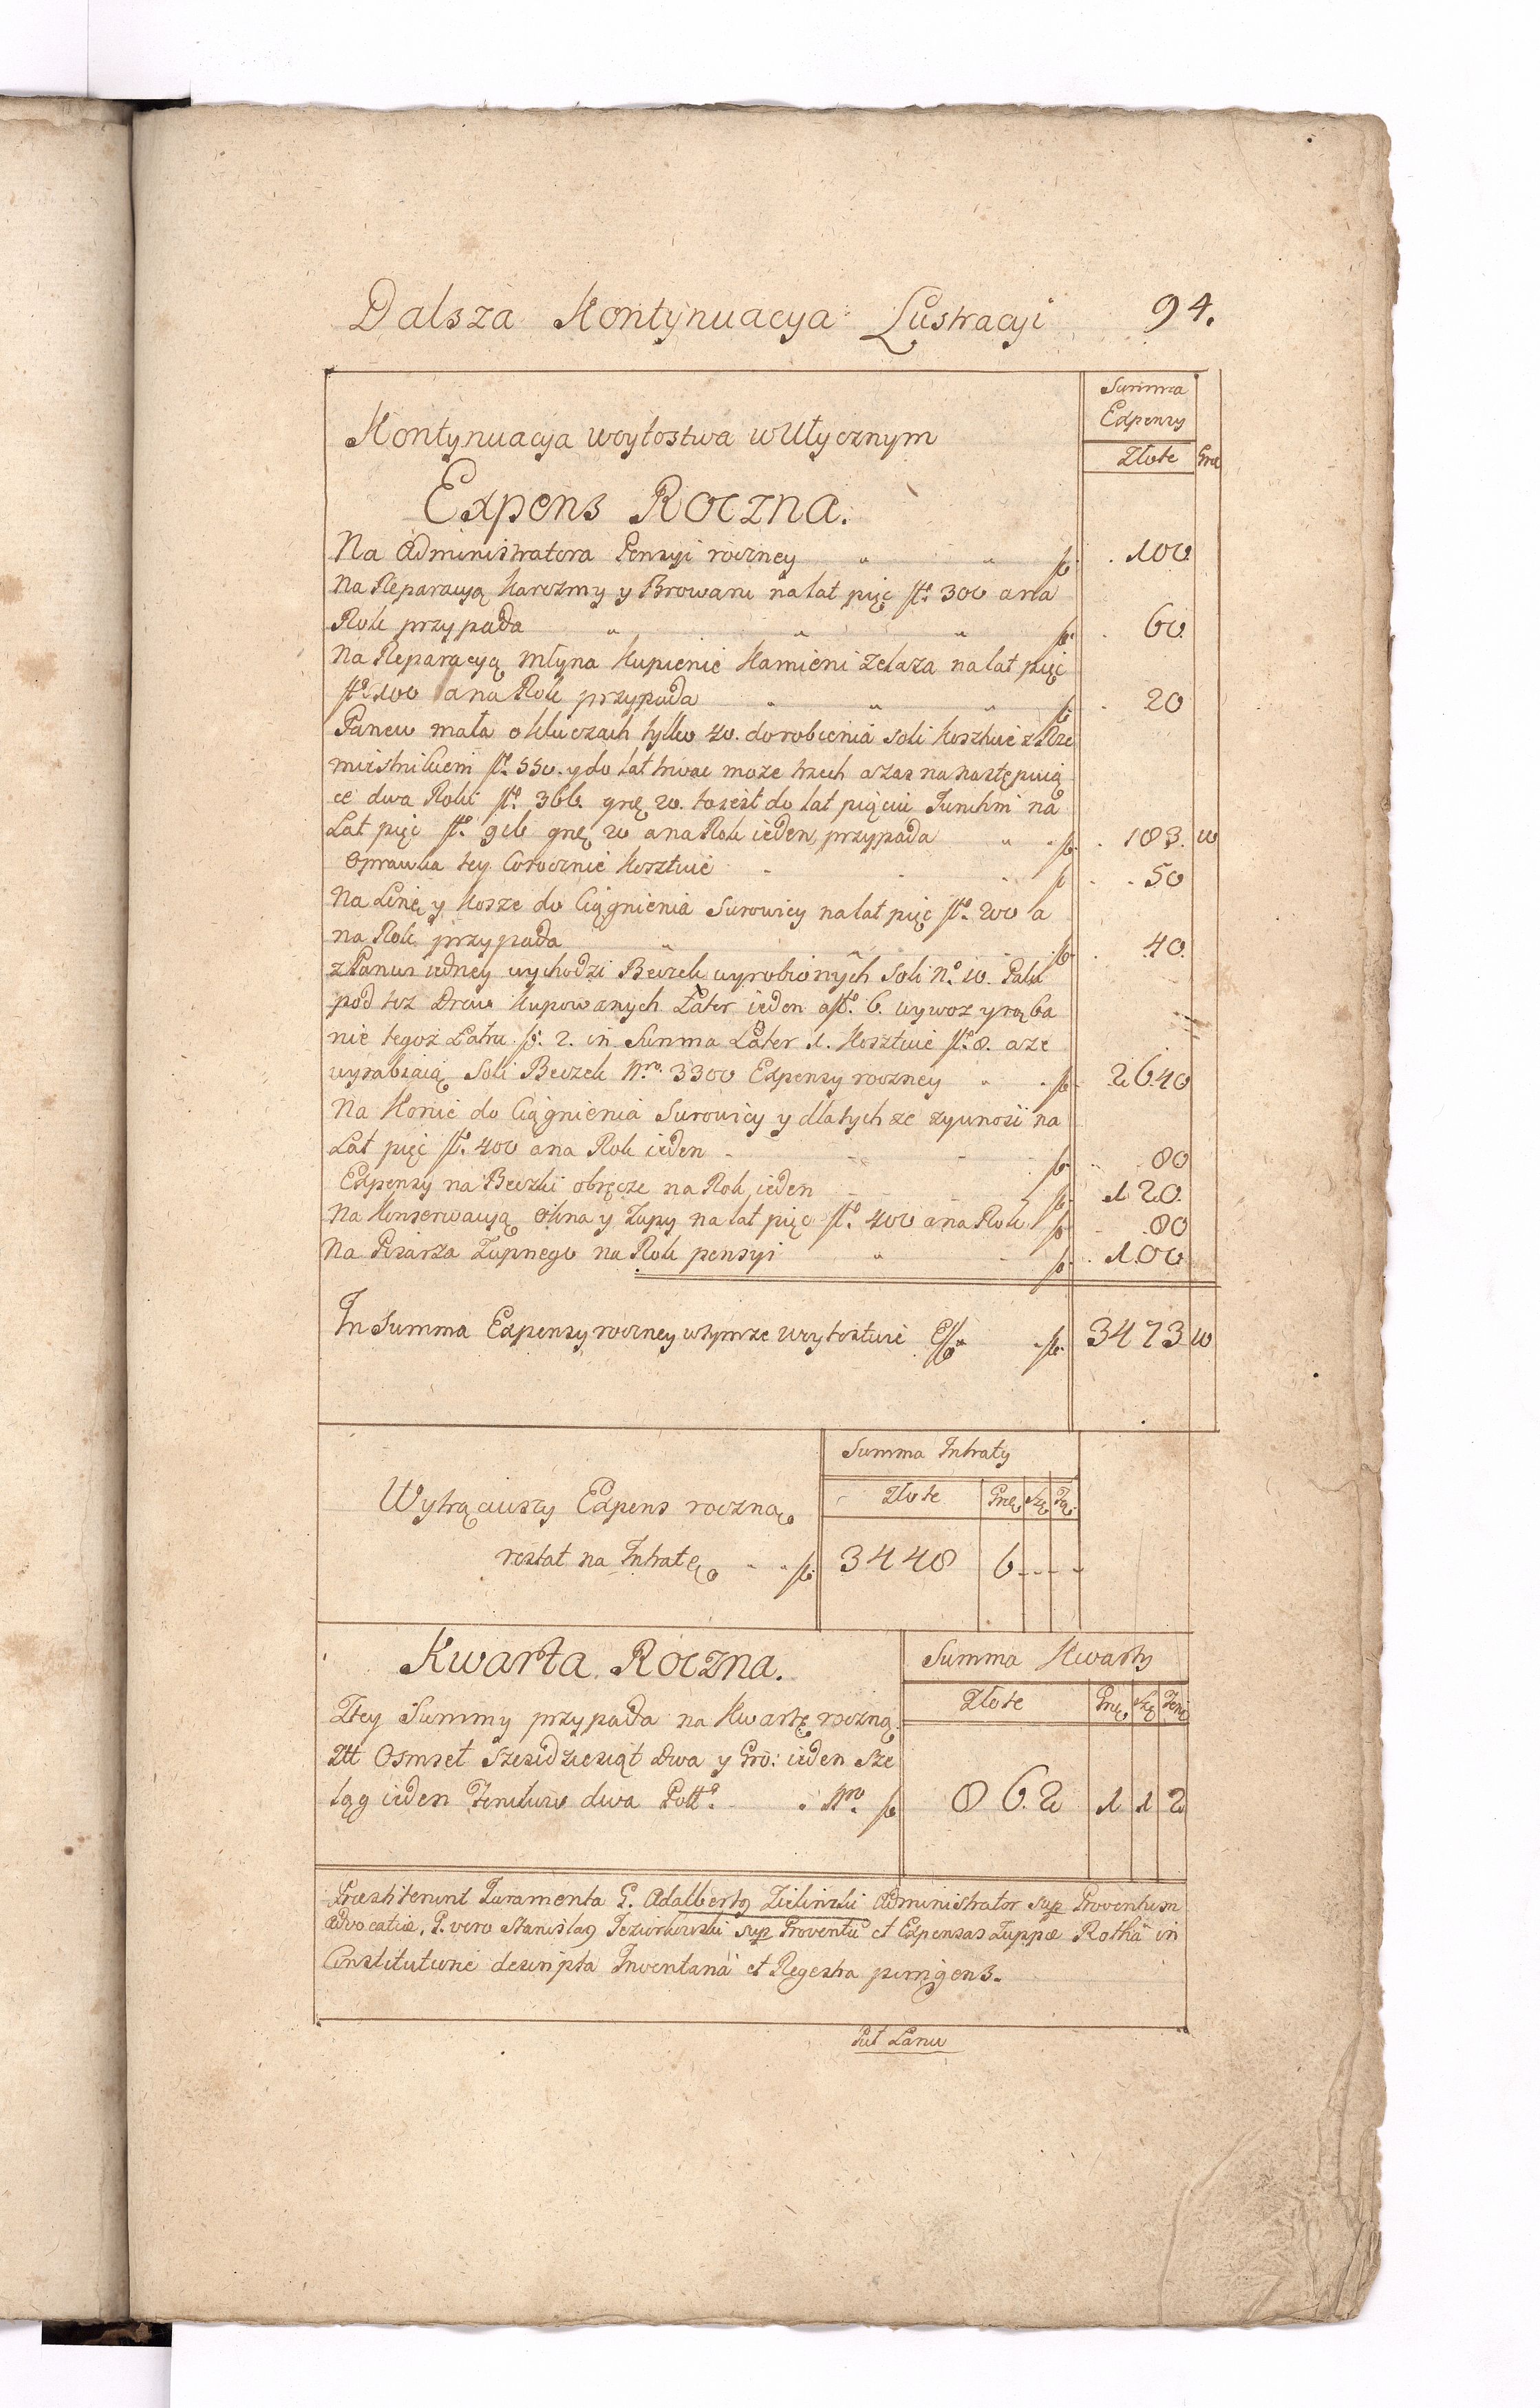 Dalsza Kontynuacya Lustracyi 94.
Summa
Expensy
Złote Gra
Kontynuacya woytostwa w Utycznym
Expens Roczna.
Na Administratora Pensyi roczney " " fl. 100
Na Reparacyą Karczmy y Browaru na lat pięć fl: 300 a na
Rok przypada " " " fl. 60.
Na Reparacyą Młyna kupienie Kamieni Zelaza na lat pięć
fl. 100 a na Rok przypada " " " fl. 20
Panew mała o kluczach tylko 40. do robienia soli kosztuie z Rze
mieslnikiem fl. 550. y do lat trwac może trzech a zas na następuią
ce dwa Roki fl. 366. grę 20. to iest do lat pięciu Junctim na
Lat pięc fl. 916 grę 20 a na Rok ieden przypada " fl. 183. 10
Oprawka tey Corocznie kosztuie fl. 50
Na Linę y Kosze do Ciągnienia Surowicy na lat pięc fl. 200 a
na Rok przypada " " fl. 40.
z Panwi iedney wychodzi Beczek wyrobionych Soli No. 10. Pału
pod też Drew kupowanych Łater ieden a fl. 6. wywoz y rąba
nie tegoż Łatru fl. 2. in Summa Łater 1. Kosztuie fl. 8. a że
wyrabiaią Soli Beczek Nro. 3300 Expensy roczney " fl. 2640
Na Konie do Ciągnienia Surowicy y dla tych że zywnosi na
Lat pięc fl. 400 a na Rok ieden fl. 80
Expensy na Beczki obręcze na Rok ieden fl. 120.
Na Konserwacyą Okna y Zupy na lat pięc fl. 400 a na Rok fl. 80
Na Pisarza Zupnego na Rok pensyi " fl. 100
In Summa Expensy roczney w tymże woytostwie fl. 3473 10
Summa Intraty
Złote Grę Szę
Wytrąciwszy Expens roczną
restat na Intratę fl. 3448 6 - - -
Kwarta Roczna.
Summa Kwarty
Złote Grę Szę Den
Z tey Summy przypada na Kwartę roczną
Złt Osmset Szescdziesiąt Dwa y Gro: ieden Sze
ląg ieden Denikow dwa Poll. Nro fl. 862 1 1 2
Præstiterunt Juramenta G. Adalbertg Zielinski Administrator sup Proventum
Advocatiæ, P. vero Stanislag Jeziorkowski sup Proventu et Expensas Zuppæ Rotha in
Constitutione descripta Inventaria et Regestra porrigens.